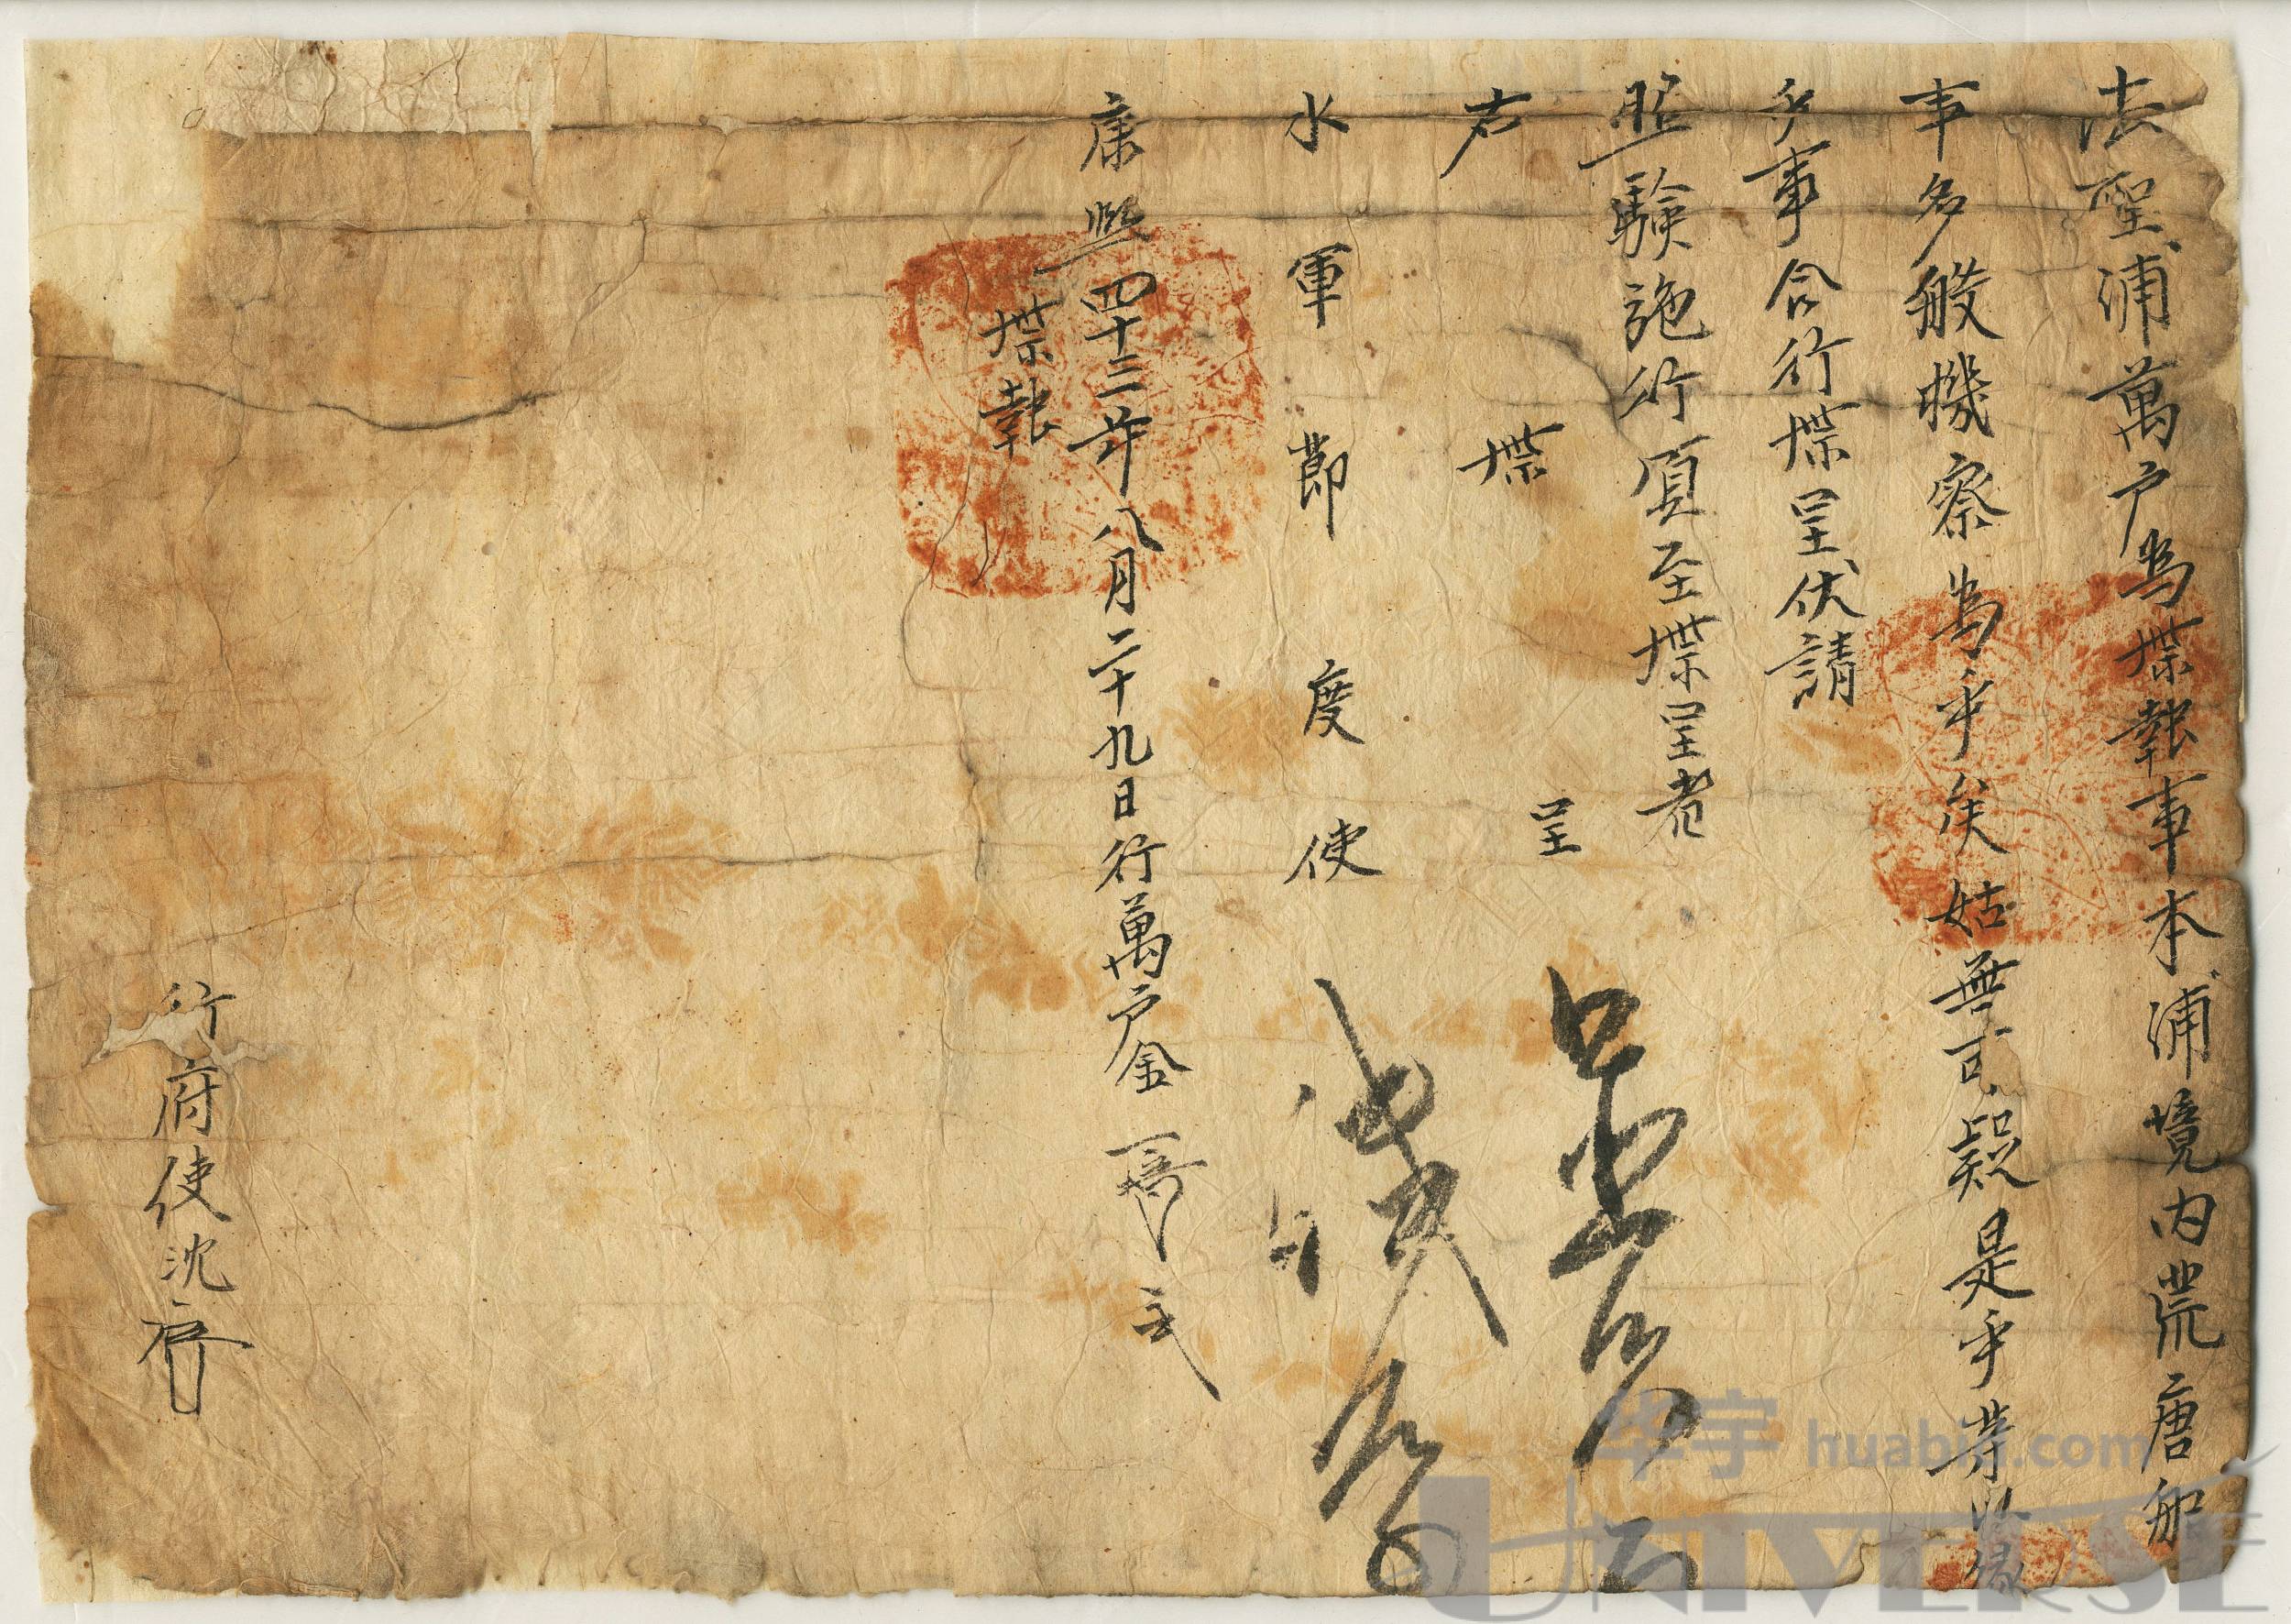 法聖浦萬户爲牒報事本浦境内荒唐船
事多般機察爲乎矣姑無可疑是乎等以緣
乎事合行牒呈伏請
照驗施行須至牒呈者
右牒呈
水軍節度使
康熙四十三年八月二十九日行萬户金
牒報
行府使沈
华宇 huabid.com
UNIVERSE